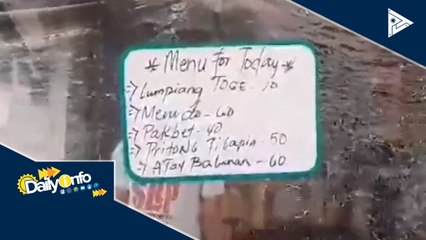 * Menu for Today *
→ Lumpiang TOGE - 10
→ Menudo - 60
→ Pakbet - 40
→ Pritong Tilapia - 50
→ ATay Balunan - 60
Daily info